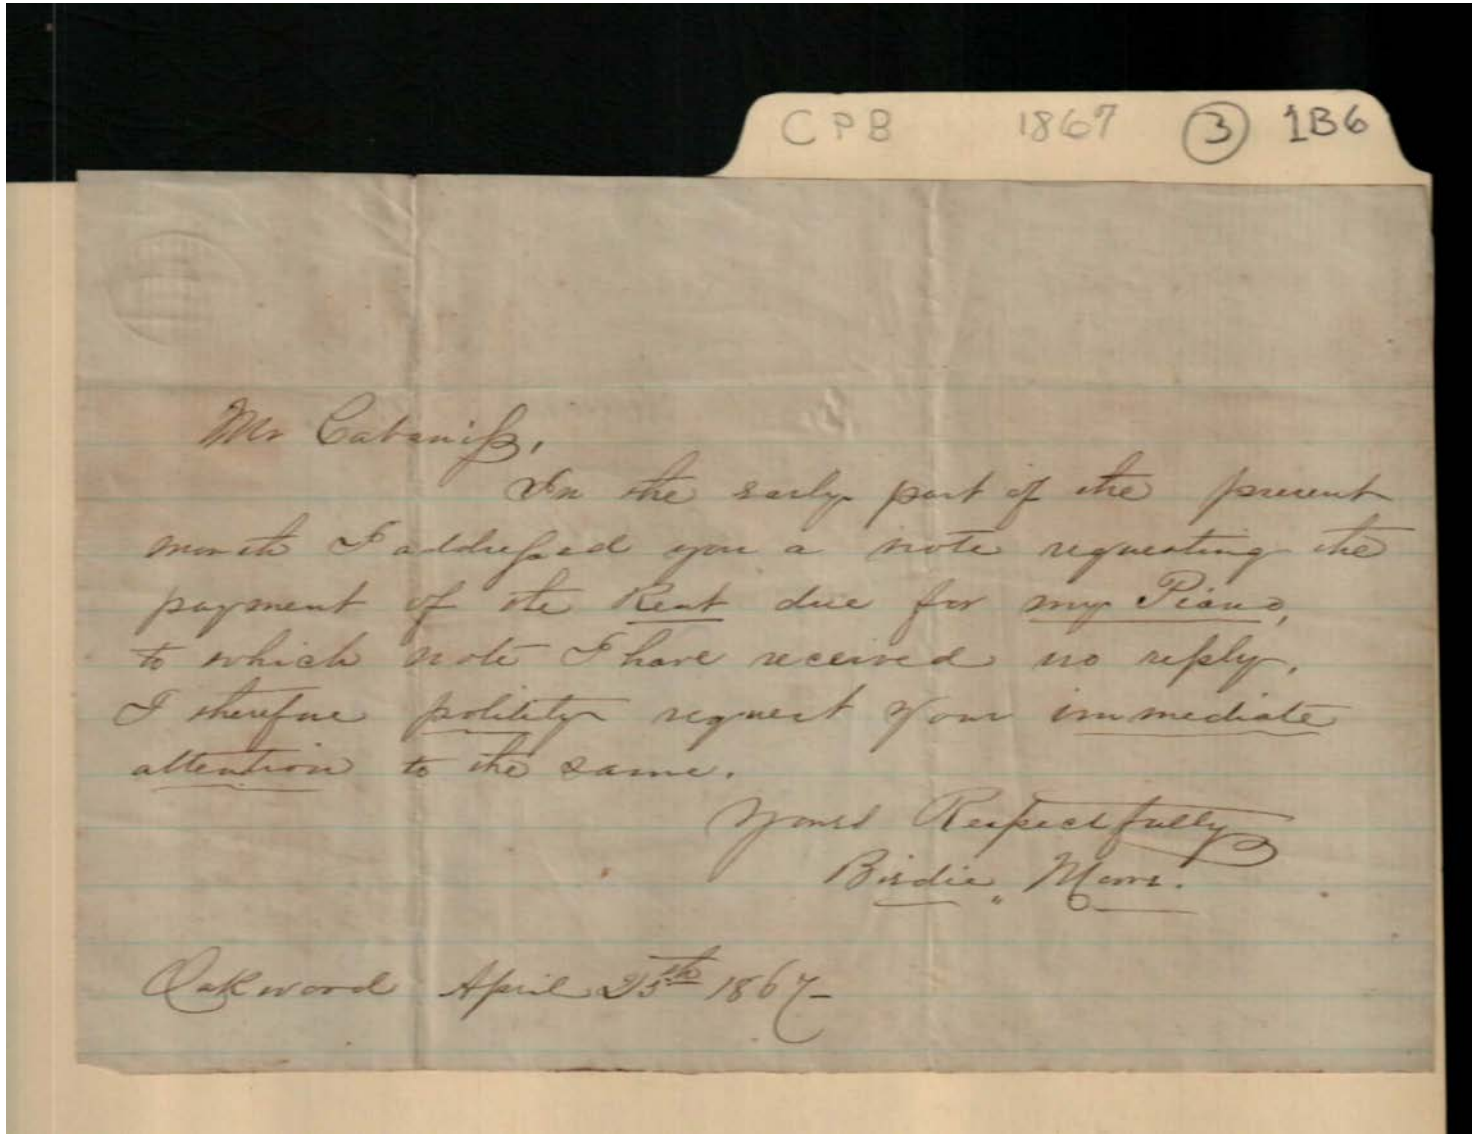 CPB 1867 3 1B6
Mr Cabaniss,
In the early part of the present
month I addressed you a note requesting the
payment of the Rent due for my Piano,
to which note I have received no reply.
I therefore politely request your immediate
attention to the same.
Yours Respectfully
Birdie
Oakwood April 25th 1867